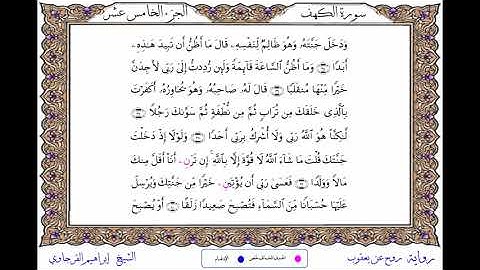 سورة الكهف الجزء الخامس عشر
وَدَخَلَ جَنَّتَهُۥ وَهُوَ ظَالِمٌ لِّنَفْسِهِۦ قَالَ مَآ أَظُنُّ أَن تَبِيدَ هَٰذِهِۦٓ
أَبَدًا ۝ وَمَآ أَظُنُّ ٱلسَّاعَةَ قَآئِمَةً وَلَئِن رُّدِدتُّ إِلَىٰ رَبِّى لَأَجِدَنَّ
خَيْرًا مِّنْهَا مُنقَلَبًا ۝ قَالَ لَهُۥ صَاحِبُهُۥ وَهُوَ يُحَاوِرُهُۥٓ أَكَفَرْتَ
بِٱلَّذِى خَلَقَكَ مِن تُرَابٍ ثُمَّ مِن نُّطْفَةٍ ثُمَّ سَوَّىٰكَ رَجُلًا ۝
لَّٰكِنَّا۠ هُوَ ٱللَّهُ رَبِّى وَلَآ أُشْرِكُ بِرَبِّىٓ أَحَدًا ۝ وَلَوْلَآ إِذْ دَخَلْتَ
جَنَّتَكَ قُلْتَ مَا شَآءَ ٱللَّهُ لَا قُوَّةَ إِلَّا بِٱللَّهِ إِن تَرَنِۦ أَنَا۠ أَقَلَّ مِنكَ
مَالًا وَوَلَدًا ۝ فَعَسَىٰ رَبِّىٓ أَن يُؤْتِيَنِۦ خَيْرًا مِّن جَنَّتِكَ وَيُرْسِلَ
عَلَيْهَا حُسْبَانًا مِّنَ ٱلسَّمَآءِ فَتُصْبِحَ صَعِيدًا زَلَقًا ۝ أَوْ يُصْبِحَ
رواية روح عن يعقوب الإدغام الشيخ إبراهيم الفرجاوي